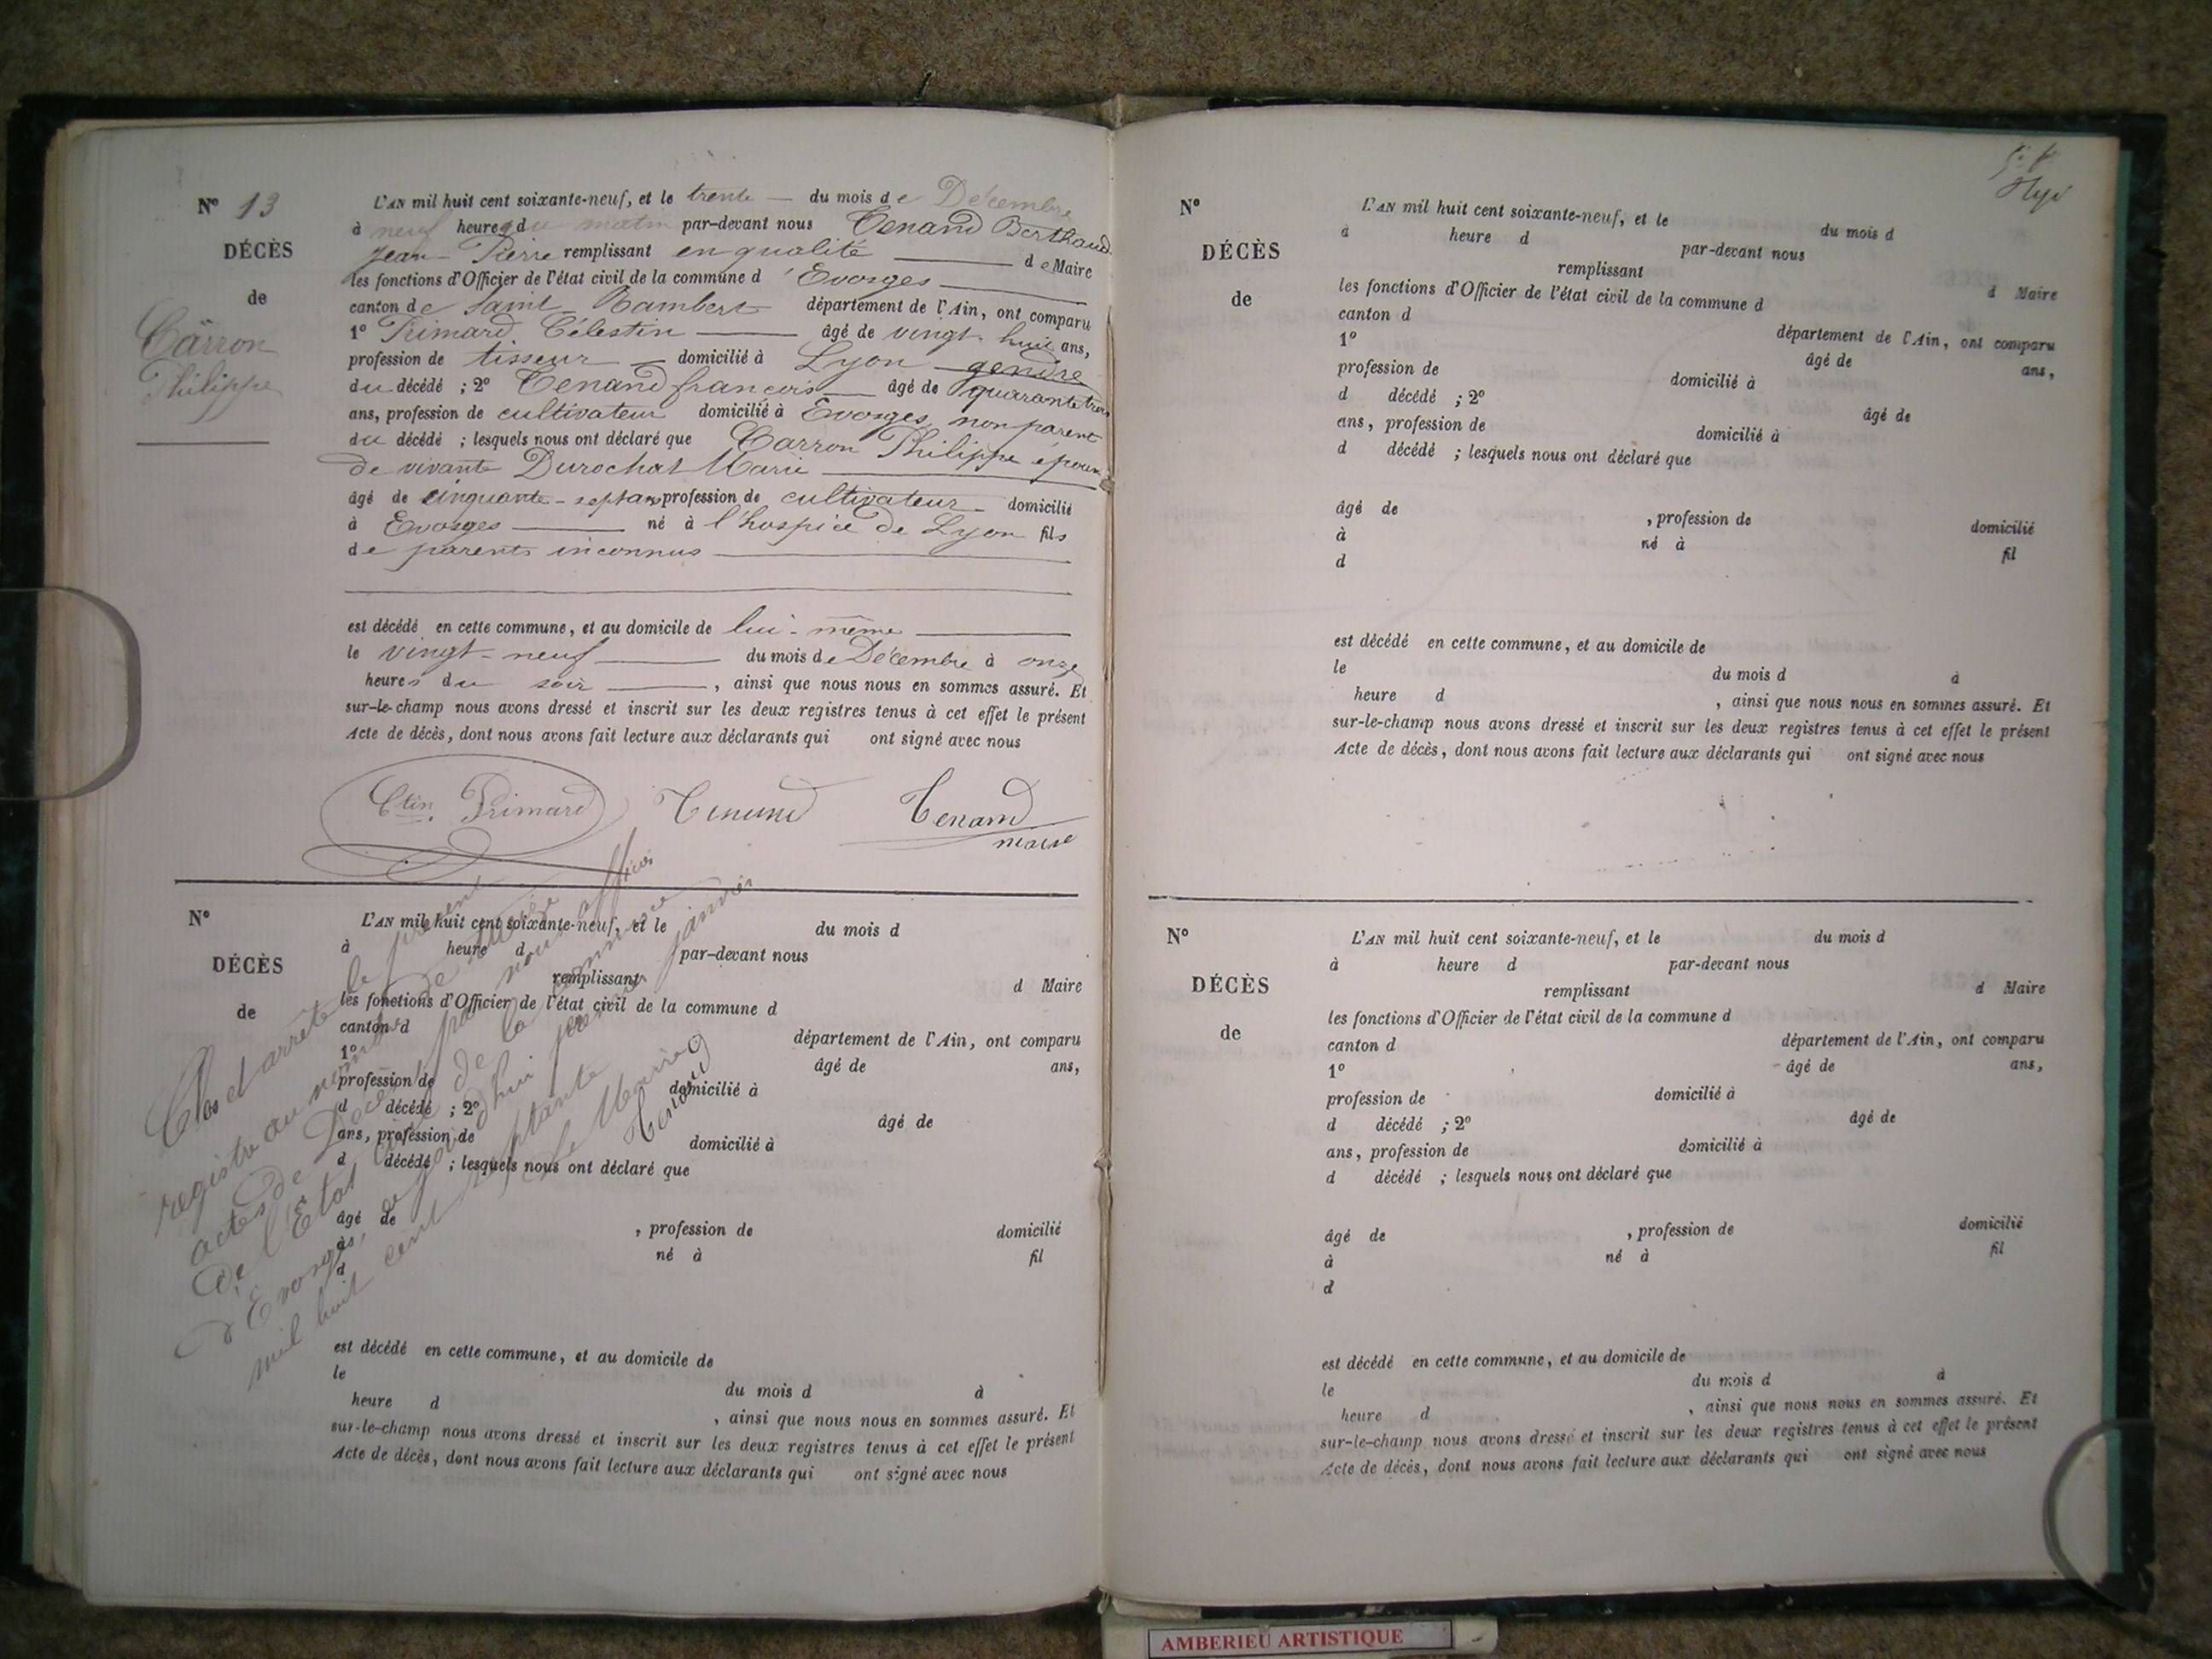 N° 13
DÉCÈS
de
Carron
Philippe
L'AN mil huit cent soixante-neuf, et le trente — du mois de Décembre
à neuf heures du matin par-devant nous Tenand Berthaud
Jean-Pierre remplissant en qualité — de Maire
les fonctions d'Officier de l'état civil de la commune d'Evosges
canton de Saint Rambert département de l'Ain, ont comparu
1° Primard Célestin — âgé de vingt huit ans,
profession de tisseur — domicilié à Lyon gendre
du décédé ; 2° Tenand françois — âgé de quarante trois
ans, profession de cultivateur domicilié à Evosges, non parent
du décédé ; lesquels nous ont déclaré que Carron Philippe époux
de vivante Durochat Marie —
âgé de cinquante-sept ans profession de cultivateur — domicilié
à Evosges — né à l'hospice de Lyon fils
de parents inconnus —
est décédé en cette commune, et au domicile de lui-même —
le vingt-neuf — du mois de Décembre à onze
heures du soir —, ainsi que nous nous en sommes assuré. Et
sur-le-champ nous avons dressé et inscrit sur les deux registres tenus à cet effet le présent
Acte de décès, dont nous avons fait lecture aux déclarants qui ont signé avec nous
Ctin. Primard Tenand Tenand
maire
N°
DÉCÈS
de
L'AN mil huit cent soixante-neuf, et le du mois d
à heure d par-devant nous
remplissant d Maire
les fonctions d'Officier de l'état civil de la commune d
canton d département de l'Ain, ont comparu
1° âgé de ans,
profession de domicilié à
d décédé ; 2° âgé de
ans, profession de domicilié à
d décédé ; lesquels nous ont déclaré que
âgé de , profession de domicilié
à né à fil
d
est décédé en cette commune, et au domicile de
le du mois d à
heure d , ainsi que nous nous en sommes assuré. Et
sur-le-champ nous avons dressé et inscrit sur les deux registres tenus à cet effet le présent
Acte de décès, dont nous avons fait lecture aux déclarants qui ont signé avec nous
Clos et arrêté le présent
registre au nombre de treize
actes de Décès par nous officier
de l'État civil de la commune
d'Evosges, ce jourd'hui premier janvier
mil huit cent septante
Le Maire
Tenand
N°
DÉCÈS
de
L'AN mil huit cent soixante-neuf, et le du mois d
à heure d par-devant nous
remplissant d Maire
les fonctions d'Officier de l'état civil de la commune d
canton d département de l'Ain, ont comparu
1° âgé de ans,
profession de domicilié à
d décédé ; 2° âgé de
ans, profession de domicilié à
d décédé ; lesquels nous ont déclaré que
âgé de , profession de domicilié
à né à fil
d
est décédé en cette commune, et au domicile de
le du mois d à
heure d , ainsi que nous nous en sommes assuré. Et
sur-le-champ nous avons dressé et inscrit sur les deux registres tenus à cet effet le présent
Acte de décès, dont nous avons fait lecture aux déclarants qui ont signé avec nous
N°
DÉCÈS
de
L'AN mil huit cent soixante-neuf, et le du mois d
à heure d par-devant nous
remplissant d Maire
les fonctions d'Officier de l'état civil de la commune d
canton d département de l'Ain, ont comparu
1° âgé de ans,
profession de domicilié à
d décédé ; 2° âgé de
ans, profession de domicilié à
d décédé ; lesquels nous ont déclaré que
âgé de , profession de domicilié
à né à fil
d
est décédé en cette commune, et au domicile de
le du mois d à
heure d , ainsi que nous nous en sommes assuré. Et
sur-le-champ nous avons dressé et inscrit sur les deux registres tenus à cet effet le présent
Acte de décès, dont nous avons fait lecture aux déclarants qui ont signé avec nous
AMBERIEU ARTISTIQUE